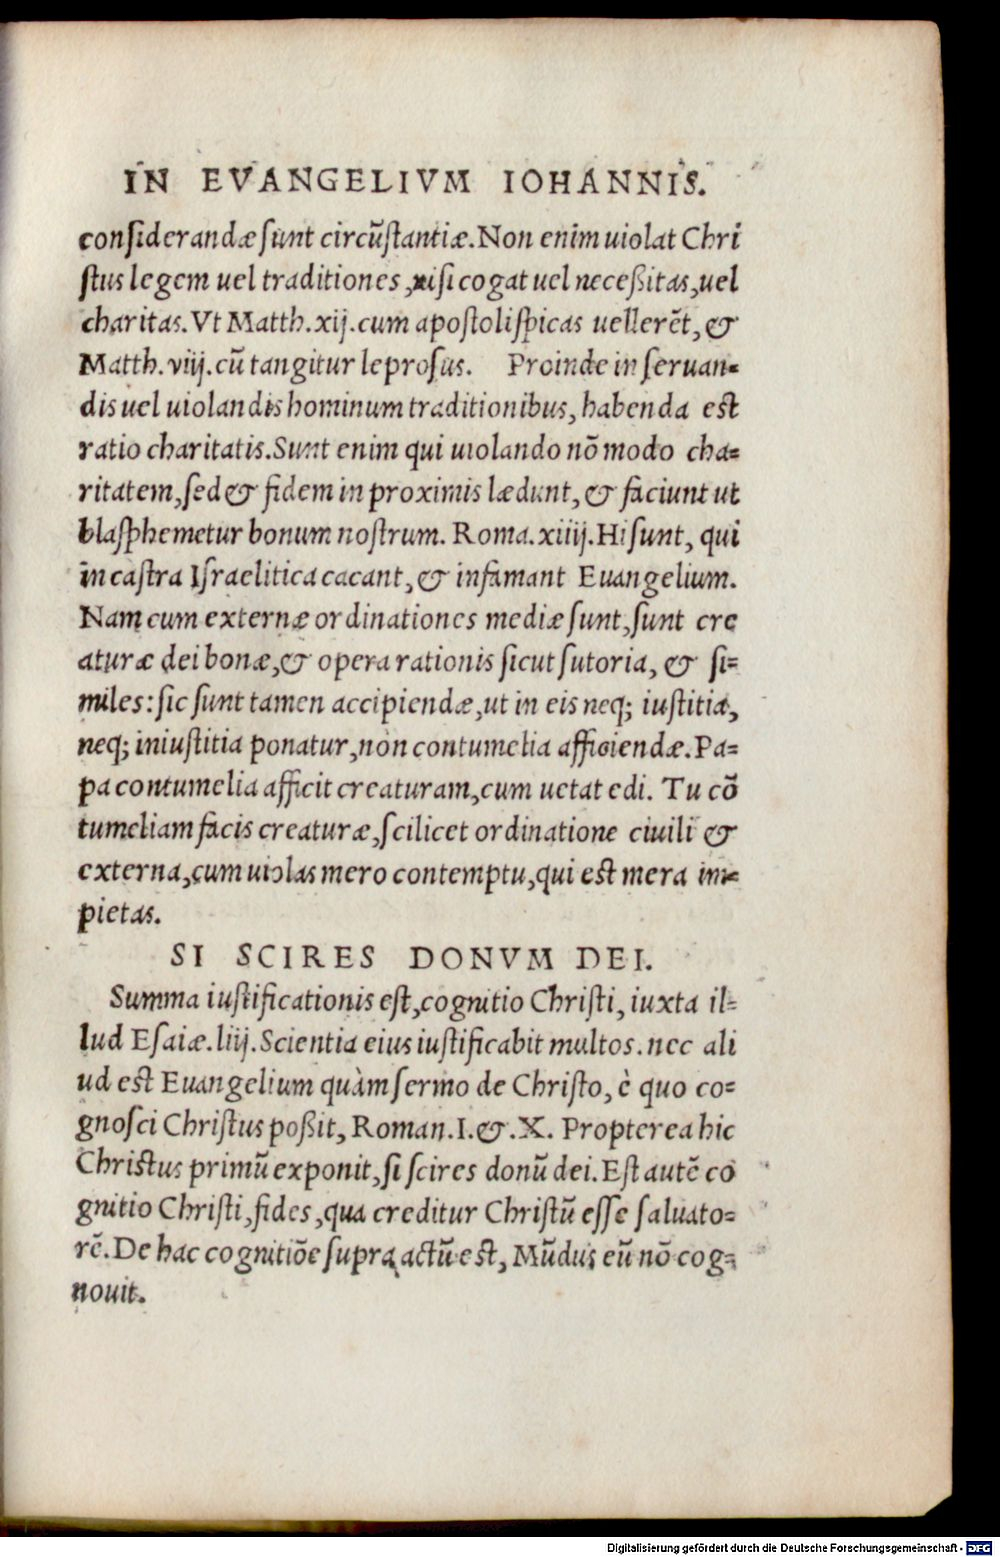 IN EVANGELIVM IOHANNIS.
considerandæ sunt circũstantiæ. Non enim uiolat Chri
stus legem uel traditiones, nisi cogat uel neceßitas, uel
charitas. Vt Matth. xij. cum apostoli spicas uellerẽt, &
Matth. viij. cũ tangitur leprosus. Proinde in seruan-
dis uel uiolandis hominum traditionibus, habenda est
ratio charitatis. Sunt enim qui uiolando nõ modo cha-
ritatem, sed & fidem in proximis lædunt, & faciunt ut
blasphemetur bonum nostrum. Roma. xiiij. Hi sunt, qui
in castra Israelitica cacant, & infamant Euangelium.
Nam cum externæ ordinationes mediæ sunt, sunt cre
aturæ dei bonæ, & opera rationis sicut sutoria, & si-
miles: sic sunt tamen accipiendæ, ut in eis neq; iustitia,
neq; iniustitia ponatur, non contumelia afficiendæ. Pa-
pa contumelia afficit creaturam, cum uetat edi. Tu cõ
tumeliam facis creaturæ, scilicet ordinatione ciuili &
externa, cum uiolas mero contemptu, qui est mera im-
pietas.
SI SCIRES DONVM DEI.
Summa iustificationis est, cognitio Christi, iuxta il-
lud Esaiæ. liij. Scientia eius iustificabit multos. nec ali
ud est Euangelium quàm sermo de Christo, è quo co-
gnosci Christus poßit, Roman. I. &. X. Propterea hic
Christus primũ exponit, si scires donũ dei. Est autẽ co
gnitio Christi, fides, qua creditur Christũ esse saluato-
rẽ. De hac cognitiõe supra actũ est, Mũdus eũ nõ cog-
nouit.
Digitalisierung gefördert durch die Deutsche Forschungsgemeinschaft - DFG